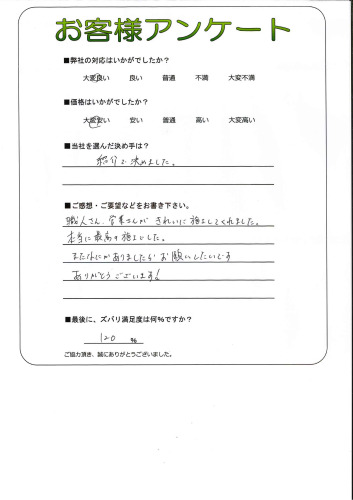 お客様アンケート
■弊社の対応はいかがでしたか?
大変良い 良い 普通 不満 大変不満
■価格はいかがでしたか?
大変安い 安い 普通 高い 大変高い
■当社を選んだ決め手は?
紹介で決めました。
■ご感想・ご要望などをお書き下さい。
職人さん、営業さんが きれいに施工してくれました。
本当に最高の施工でした。
また何かありましたら お願いしたいです
ありがとうございます!
■最後に、ズバリ満足度は何%ですか?
120 %
ご協力頂き、誠にありがとうございました。